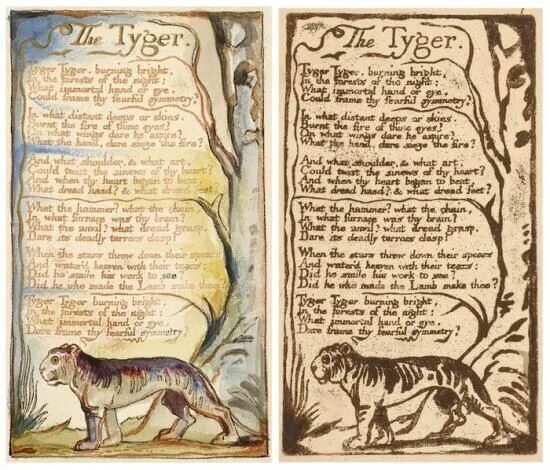 The Tyger.
Tyger Tyger. burning bright,
In the forests of the night:
What immortal hand or eye,
Could frame thy fearful symmetry?
In what distant deeps or skies.
Burnt the fire of thine eyes?
On what wings dare he aspire?
What the hand, dare sieze the fire?
And what shoulder, & what art,
Could twist the sinews of thy heart?
And when thy heart began to beat,
What dread hand? & what dread feet?
What the hammer? what the chain,
In what furnace was thy brain?
What the anvil? what dread grasp,
Dare its deadly terrors clasp!
When the stars threw down their spears
And water'd heaven with their tears:
Did he smile his work to see?
Did he who made the Lamb make thee?
Tyger Tyger burning bright,
In the forests of the night:
What immortal hand or eye,
Dare frame thy fearful symmetry?
The Tyger.
Tyger Tyger. burning bright,
In the forests of the night:
What immortal hand or eye,
Could frame thy fearful symmetry?
In what distant deeps or skies.
Burnt the fire of thine eyes?
On what wings dare he aspire?
What the hand, dare sieze the fire?
And what shoulder, & what art,
Could twist the sinews of thy heart?
And when thy heart began to beat,
What dread hand? & what dread feet?
What the hammer? what the chain,
In what furnace was thy brain?
What the anvil? what dread grasp,
Dare its deadly terrors clasp!
When the stars threw down their spears
And water'd heaven with their tears:
Did he smile his work to see?
Did he who made the Lamb make thee?
Tyger Tyger burning bright,
In the forests of the night:
What immortal hand or eye,
Dare frame thy fearful symmetry?